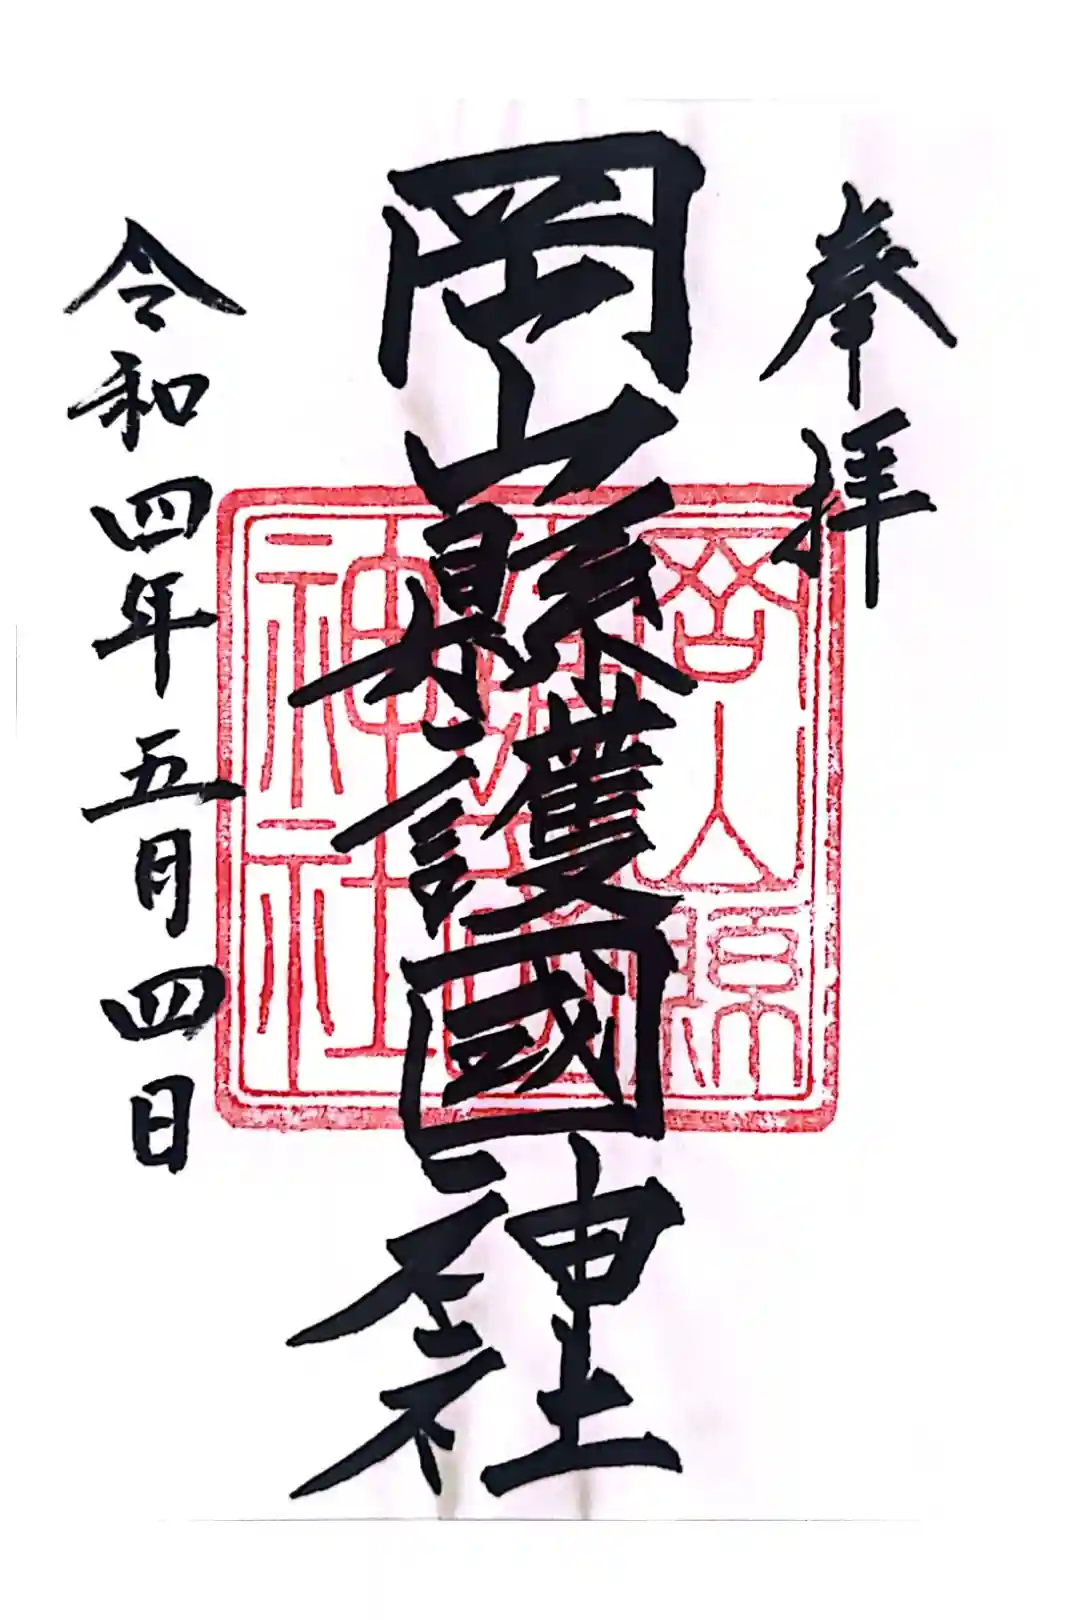 奉拝
岡山縣護國神社
岡山縣護國神社
令和四年五月四日